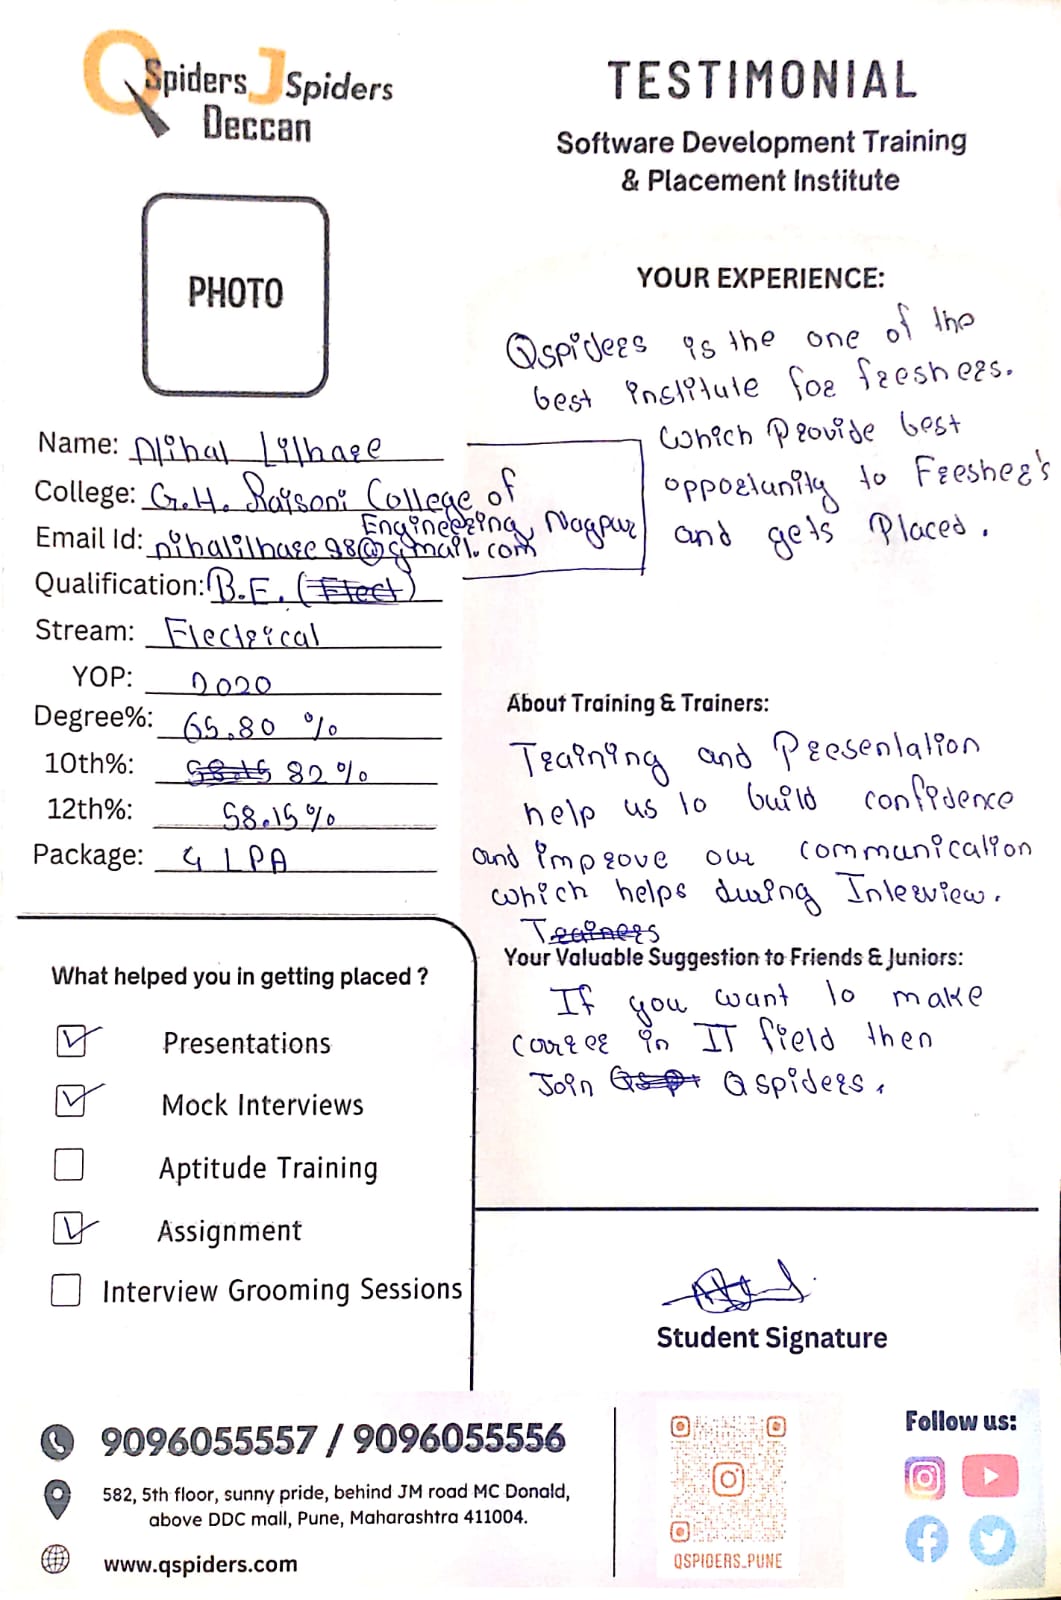 QSpiders JSpiders
Deccan
TESTIMONIAL
Software Development Training
& Placement Institute
PHOTO
Name: Nihal Lilhare
College: G.H. Raisoni College of
Engineering, Nagpur
Email Id: nihalilhare98@gmail.com
Qualification: B.E. (Elect)
Stream: Electrical
YOP: 2020
Degree%: 65.80 %
10th%: 58.15 82 %
12th%: 58.15 %
Package: 4 LPA
YOUR EXPERIENCE:
Qspiders is the one of the
best institute for freshers.
which Provide best
opportunity to Fresher's
and gets Placed.
About Training & Trainers:
Training and Presentation
help us to build confidence
and improve our communication
which helps during Interview.
Trainers
Your Valuable Suggestion to Friends & Juniors:
If you want to make
carrer in IT field then
Join Qsp Qspiders.
What helped you in getting placed ?
Presentations
Mock Interviews
Aptitude Training
Assignment
Interview Grooming Sessions
Student Signature
9096055557 / 9096055556
582, 5th floor, sunny pride, behind JM road MC Donald,
above DDC mall, Pune, Maharashtra 411004.
www.qspiders.com
QSPIDERS_PUNE
Follow us: